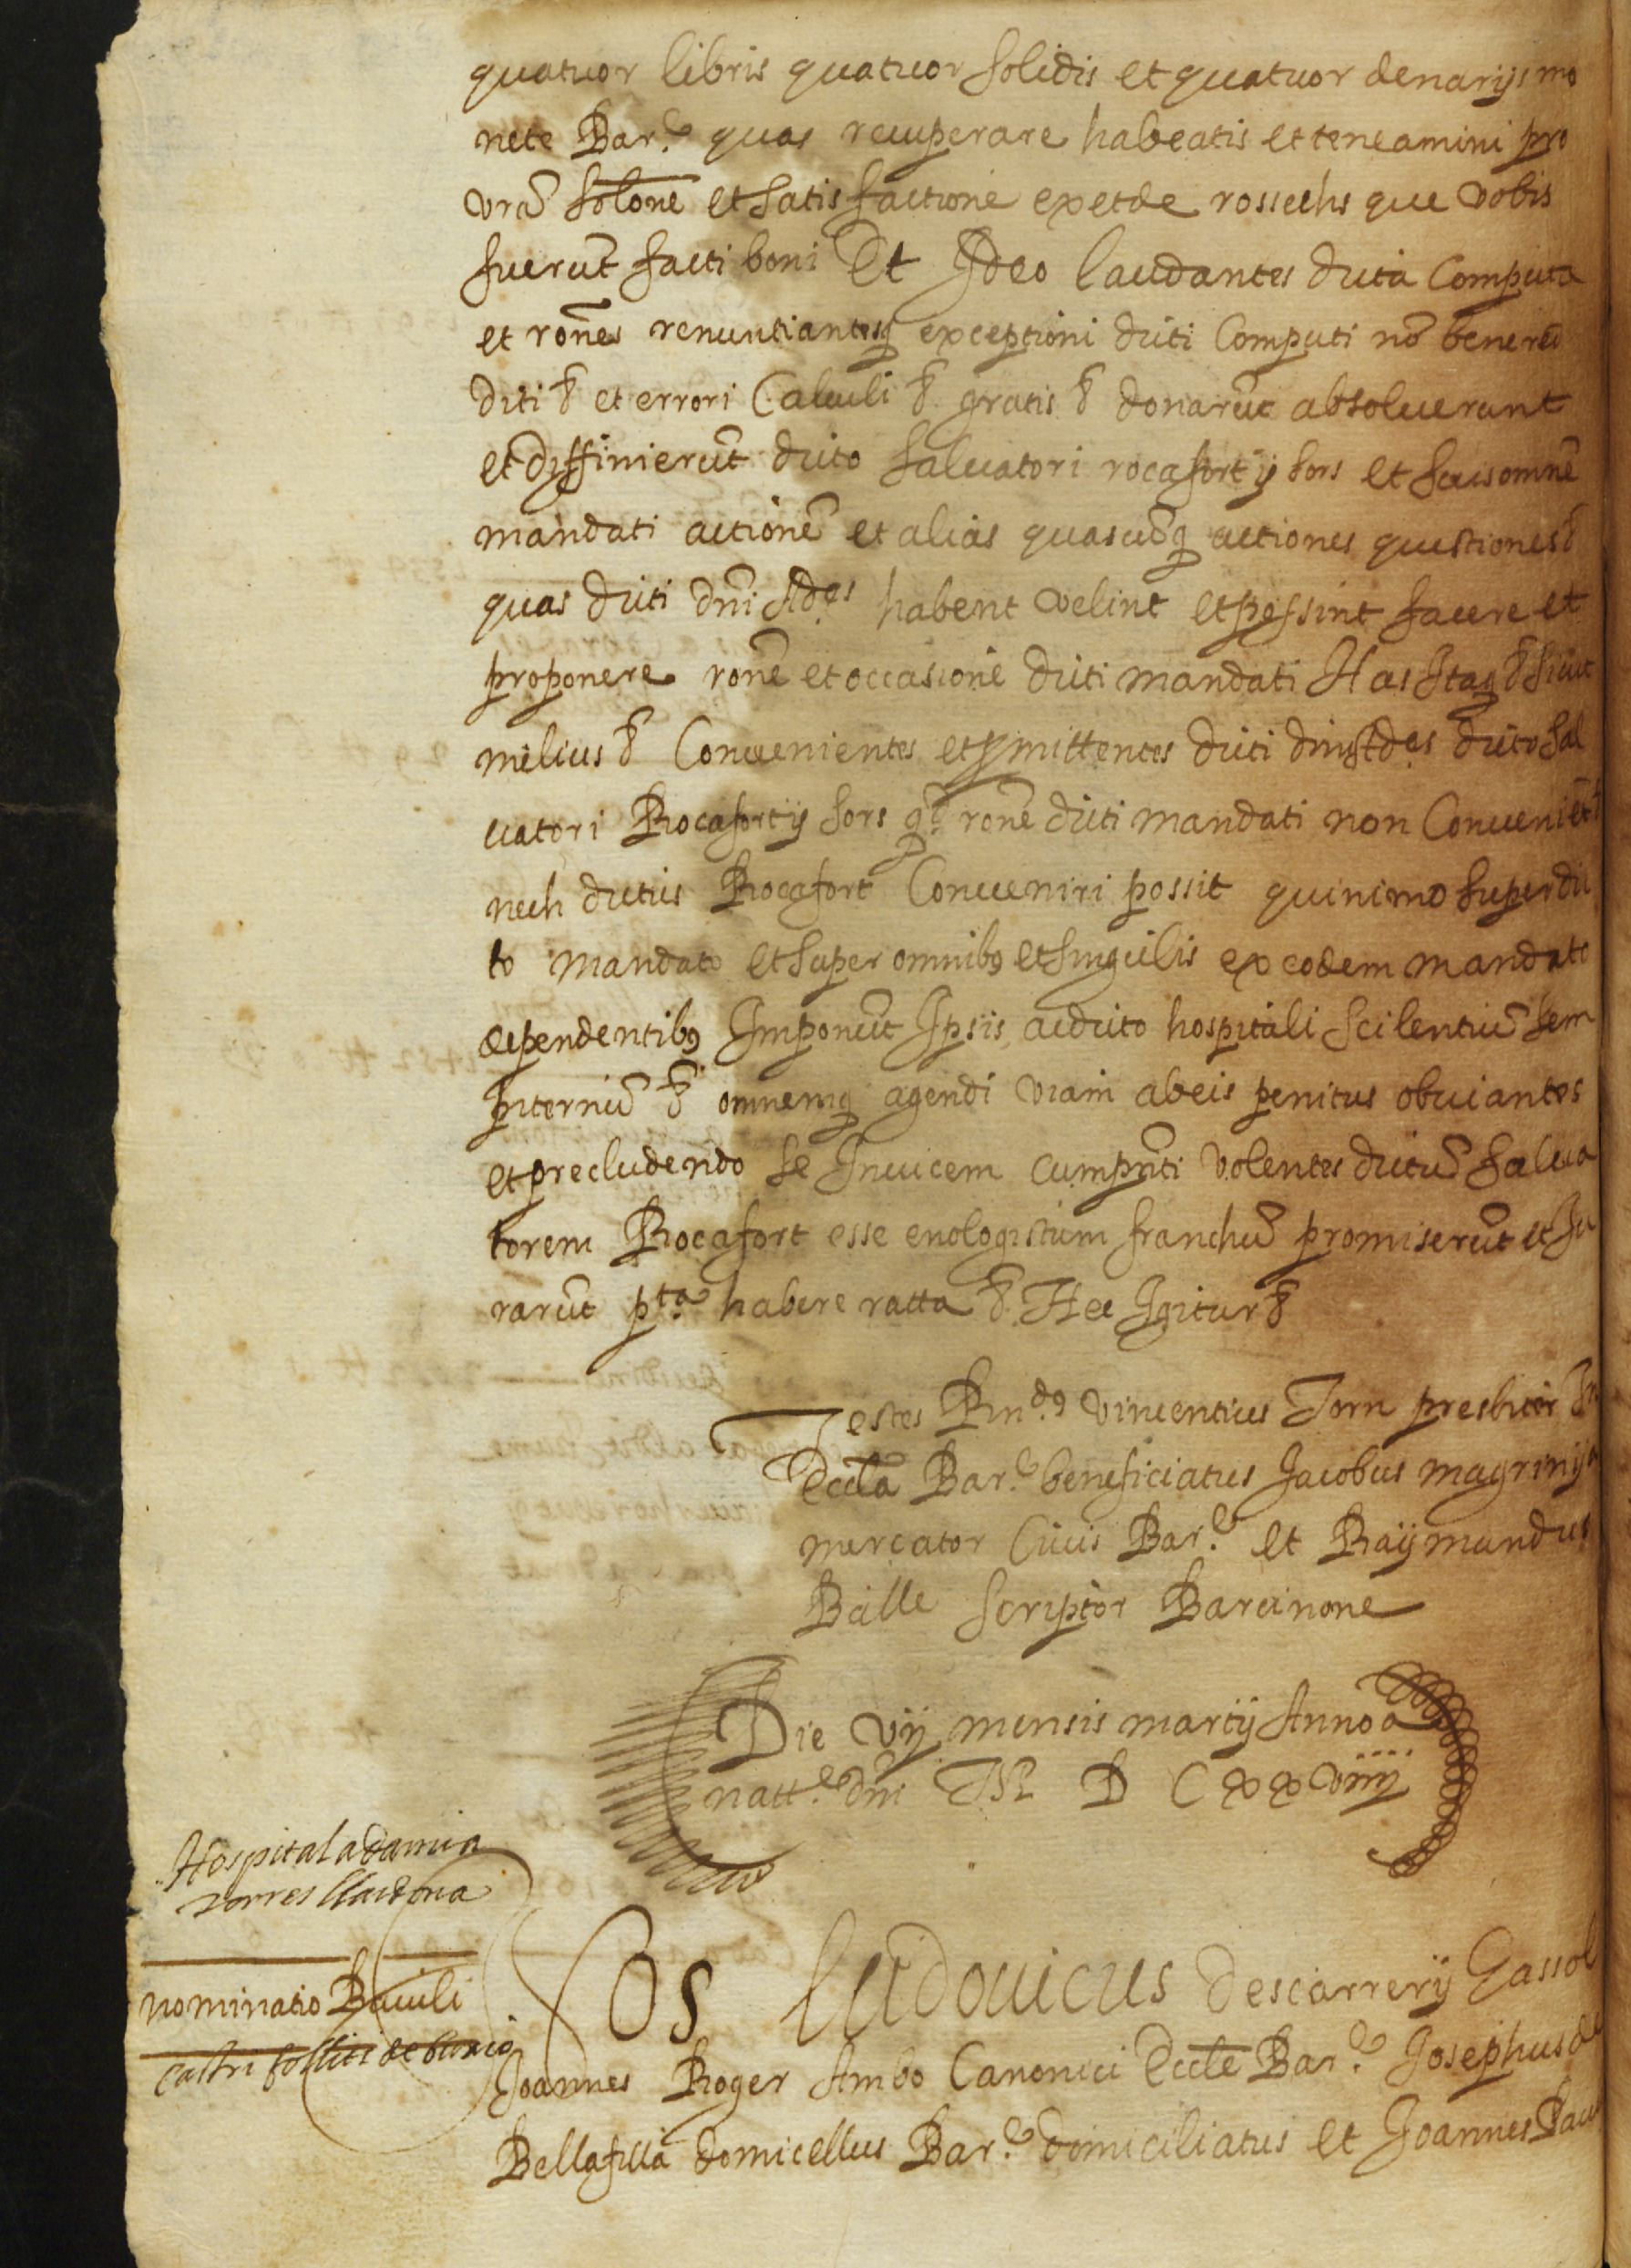 quatuor libris quatuor solidis et quatuor denarijs mo
nete Bar.e quas recuperare habeatis et teneamini pro
vra solone et satisfactione ex et de rossechs que vobis
fuerut facti boni Et Ideo laudantes dicta Computa
et rones renuntiantesq exceptioni dicti Computi no bene red
diti & et errori Calculi & gratis & donarut absoluerunt
et diffinierut dicto saluatori rocafort ij sors et suis omne
mandati actione et alias quascuq actiones questiones &
quas dicti dni Ad.es habent velint et possint facere et
proponere rone et occasione dicti mandati Has Itaq & sicut
melius & Conuenientes et pmittentes dicti dni Ad.es dicto Sal
uatori Rocafort ij sors q. rone dicti mandati non Conueniet
nech dictus Rocafort Conueniri possit quinimo super dic
to mandato et super omnibq et singulis ex eodem mandato
dependentibq Imponut Ipsis ac dicto hospitali scilentiu sem
piterniu & omnemq agendi viam ab eis penitus obuiantes
et precludendo se Inuicem cum pnti volentes dictu salua
torem Rocafort esse enologistum franchu promiserut et Iu
rarut p.ta habere ratta & Hec Igitur &
Testes Rnd.9 vincentius Torn presbiter In
Eccla Bar.e beneficiatus Jacobus magrinya
mercator Ciuis Bar.e et Raijmundus
Batlle scriptor Barcinone
Die vij mensis martij Anno a
natt.e dni M D C xx viiij
Hospital a damia
torres llardona
nominatio Baiuli
castri follits de
Nos Ludouicus descarrerij Gassol
Joannes Roger Ambo Canonici Eccle Bar.e Josephus de
Bellafilla domicellus Bar.e domiciliatus et Joannes Pau